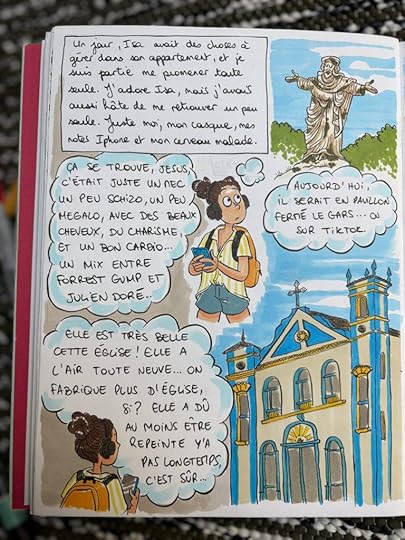 Un jour, Isa avait des choses à
gérer dans son appartement, et je
suis partie me promener toute
seule. J'adore Isa, mais j'avais
aussi hâte de me retrouver un peu
seule. Juste moi, mon casque, mes
notes Iphone et mon cerveau malade.
ÇA SE TROUVE, JESUS,
C'ÉTAIT JUSTE UN MEC
UN PEU SCHIZO, UN PEU
MEGALO, AVEC DES BEAUX
CHEVEUX, DU CHARISME,
ET UN BON CARDIO...
UN MIX ENTRE
FORREST GUMP ET
JULIEN DORÉ..
AUJOURD'HUI,
IL SERAIT EN PAVILLON
FERMÉ LE GARS... OU
SUR TIKTOK.
ELLE EST TRÈS BELLE
CETTE ÉGLISE! ELLE A
L'AIR TOUTE NEUVE... ON
FABRIQUE PLUS D'ÉGLISE,
SI? ELLE A DÛ
AU MOINS ÊTRE
REPEINTE Y'A
PAS LONGTEMPS,
C'EST SÛR...